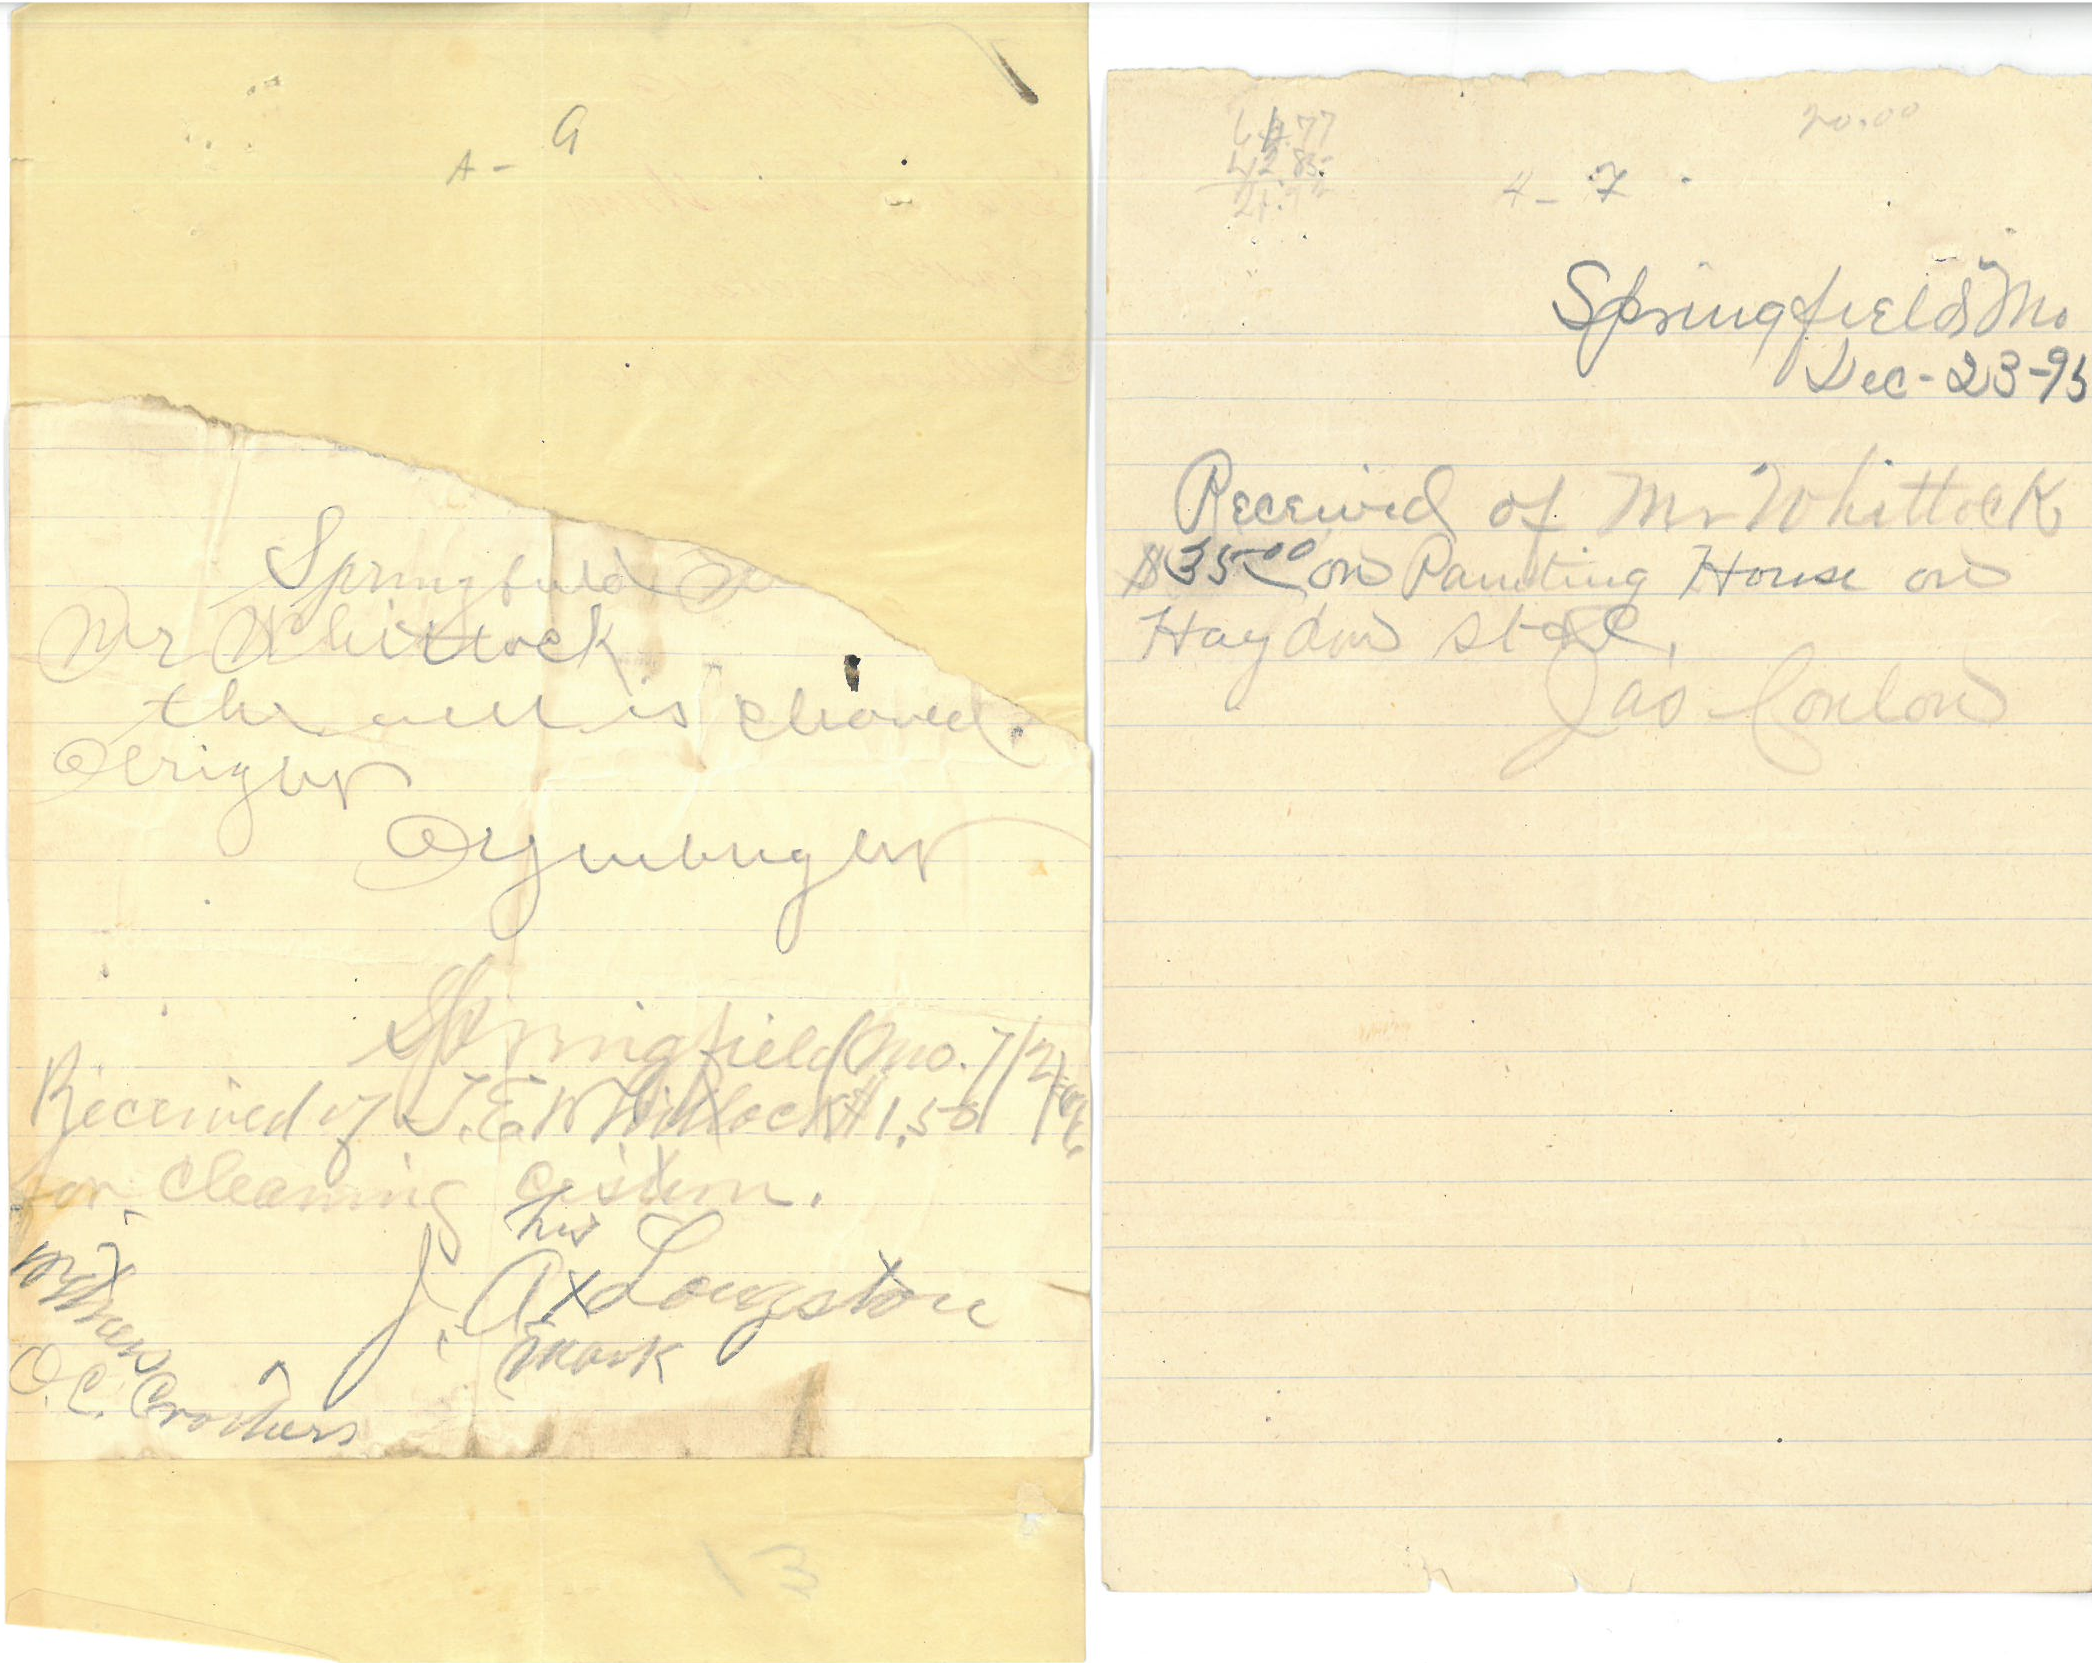 A - 9
Springfield
Mr Whittock
the well is cleaned
Alright
Springfield Mo. 7/2
Received of T. E. Whittlock $1.50
for cleaning cistern.
his
J. A. X Longston
mark
Witness
O. C. Crothers
13
77
42.85
20.00
A - 7
Springfield Mo
Dec - 23 - 95
Received of Mr Whittock
$35.00 on Painting House on
Haydon
Jas Conlon